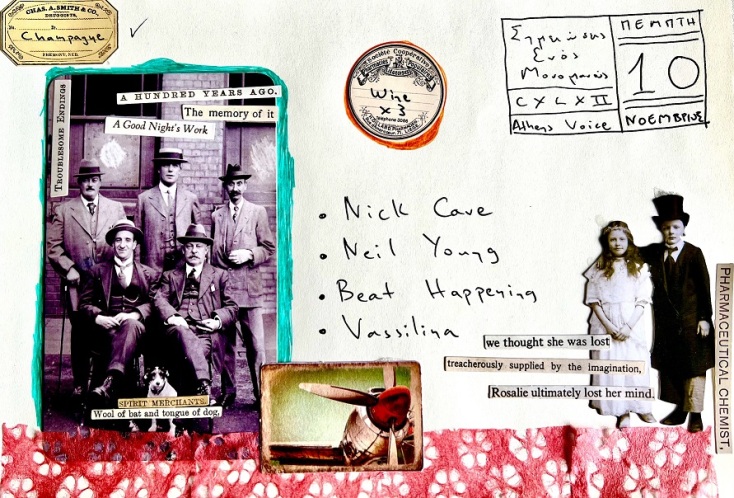 CHAS. A. SMITH & CO.
DRUGGISTS,
Champagne
FREMONT, NEB.
TROUBLESOME ENDINGS
A HUNDRED YEARS AGO.
The memory of it
A Good Night's Work
SPIRIT MERCHANTS.
Wool of bat and tongue of dog,
Wine
x 3
Σημειώσεις
Ενός
Μονομανούς
CXLXII
Athens Voice
ΠΕΜΠΤΗ
10
ΝΟΕΜΒΡΙΟΣ
• Nick Cave
• Neil Young
• Beat Happening
• Vassilina
we thought she was lost
treacherously supplied by the imagination,
Rosalie ultimately lost her mind.
PHARMACEUTICAL CHEMIST,